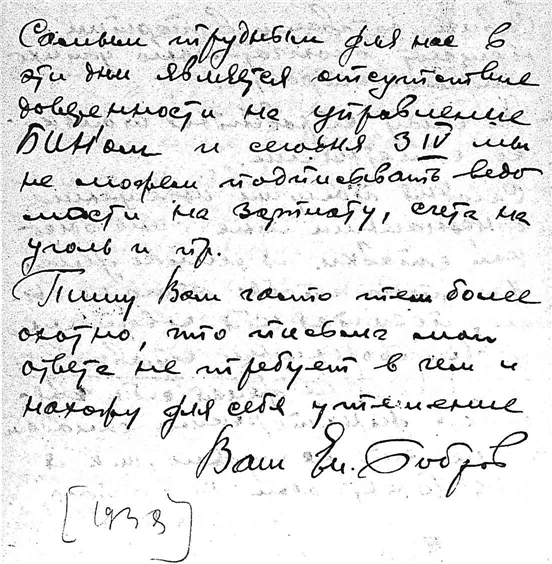 Самым трудным для нас в
эти дни является отсутствие
доверенности на управление
БИН'ом и сегодня 3 IV мы
не можем подписывать ведо
мости на зарплату, счета на
уголь и пр.
Пишу Вам часто тем более
охотно, что письма мои
ответа не требует в чем и
нахожу для себя утешение
Ваш Ев. Бобров
[1938]